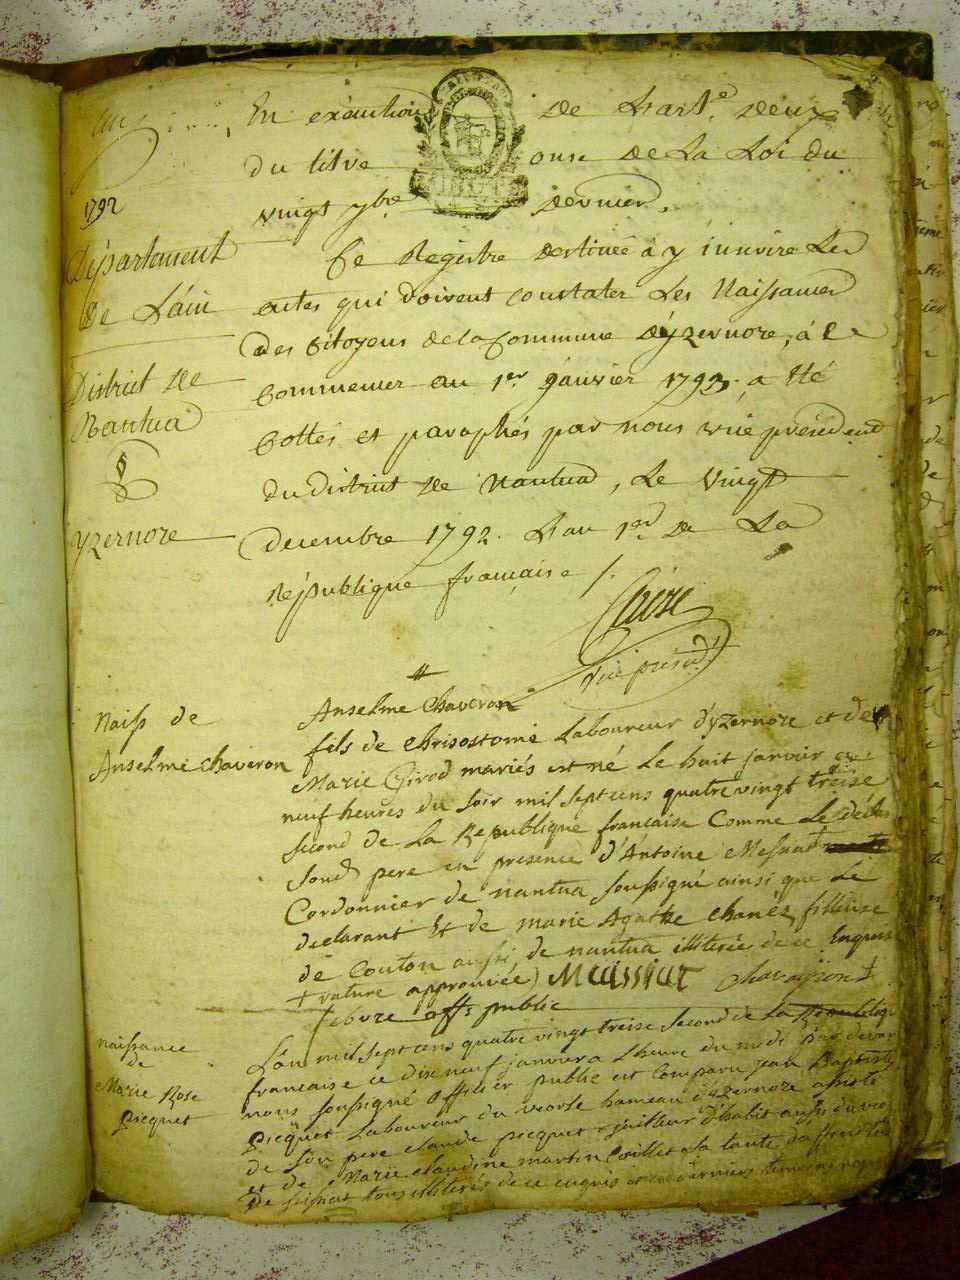 an
1792
Département
De L'ain
District De
Nantua
§
yzernore
En exécution De L'art.e Deux
du titre onse De La Loi du
vingt 7bre Dernier.
Ce Registre destinée à y inscrire Les
actes qui doivent constater Les Naissances
Des Citoyens de la Commune d'yzernore, à
Commencer au 1er janvier 1793, a Eté
Cottés et paraphés par nous vice président
du District De Nantua, Le Vingt
decembre 1792. L'an 1er De La
République française /.
vice présidt
Naiss de
Anselme Chaveron
Anselme Chaveron
fils de Chrisostome Laboureur d'yzernore et de
Marie Girod mariés est né Le huit janvir
neuf heures du soir mil sept cens quatre vingt treise
second de La Republique française Comme Le
pere en presence d'Antoine
Cordonnier de nantua soussigné ainsi que Le
declarant Et de marie Agathe Chanel filleuse
de Couton aussi de nantua illiterée de ce Enquise
+ rature approuvée)
febvre off: public
naissance
de
Marie Rose
Picquet
L'an mil sept cens quatre vingt treise second de La Republique
française ce dix neuf janvier a L'heure du midi par devant
nous soussigné Officier public est Comparu jean Baptiste
Picquet Laboureur du veorle hameau d'yzernore assisté
de son pere Claude picquet tailleur d'habit aussi du
et de Marie Claudine martin Coillet sa tante
De tous illiterés de ce enquis et derniers temoins